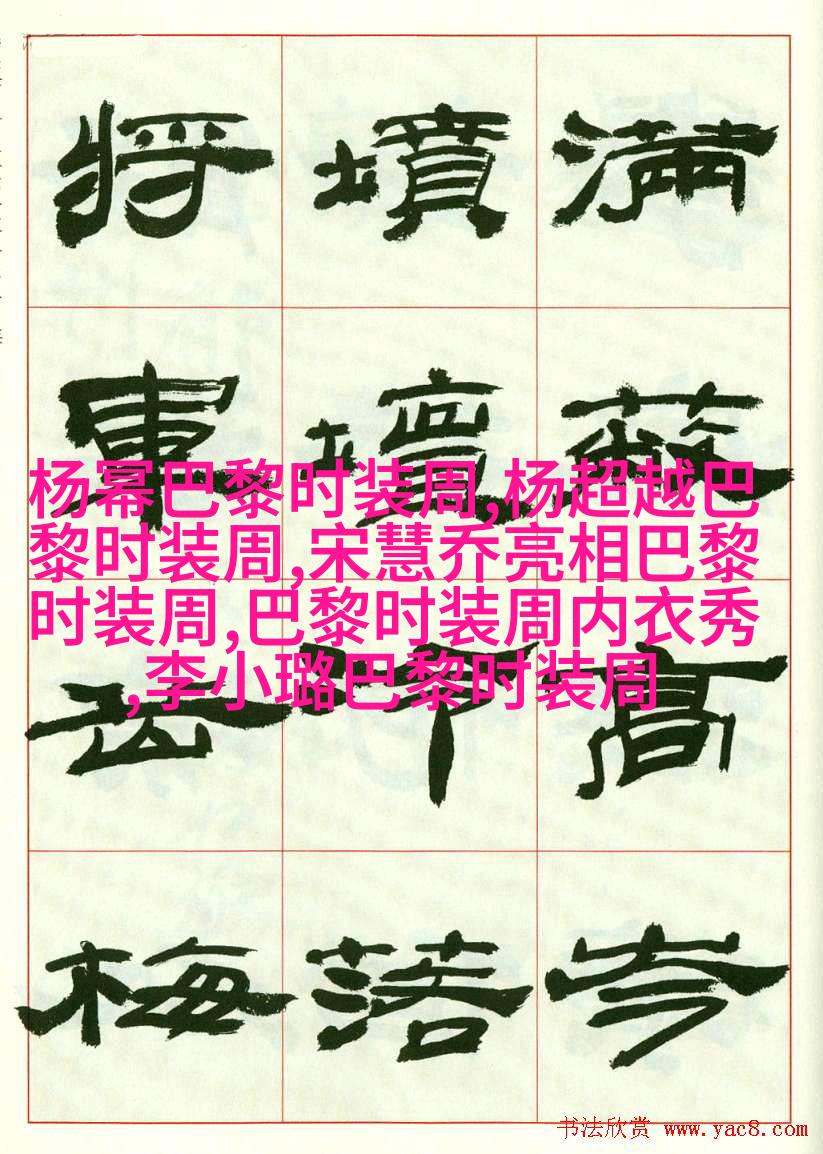 满高岑
墳壇落
将軍梅
杨幂巴黎时装周,杨超越巴
黎时装周,宋慧乔亮相巴黎
时装周,巴黎时装周内衣秀
,李小璐巴黎时装周
书法欣赏 www.yac8.com